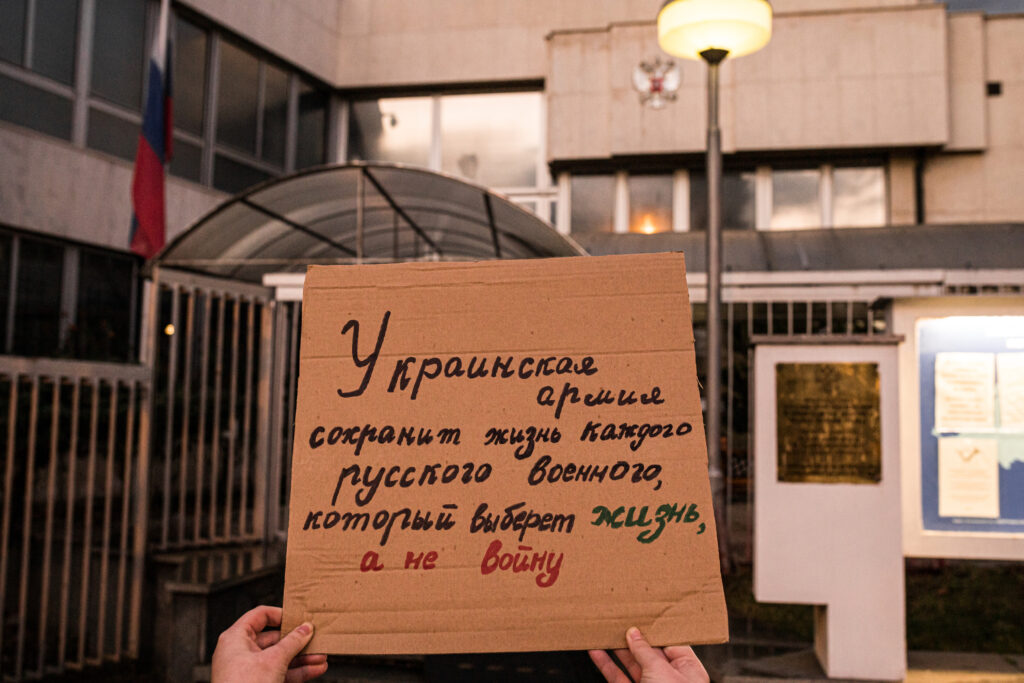 Украинская
армия
сохранит жизнь каждого
русского военного,
который выберет жизнь,
а не войну